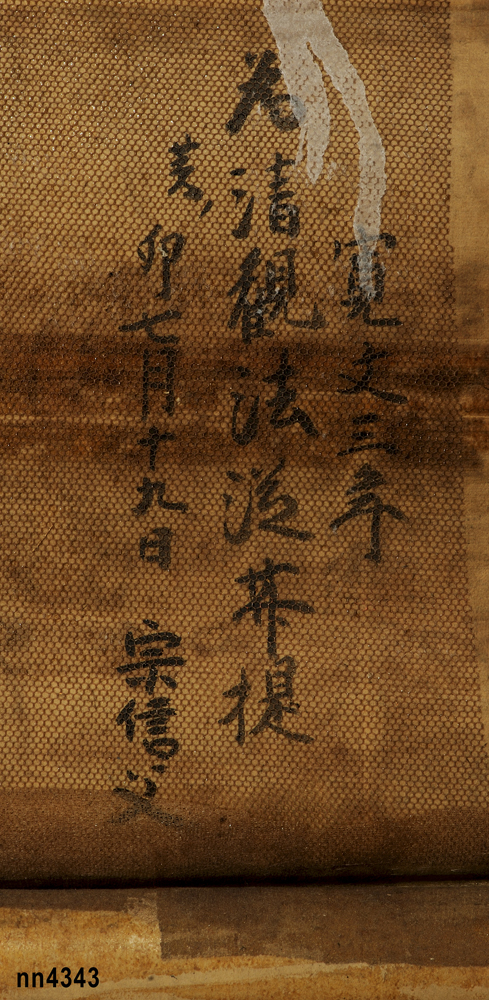 寛文三年
為清觀法菩提
癸卯七月十九日 宗信父
nn4343